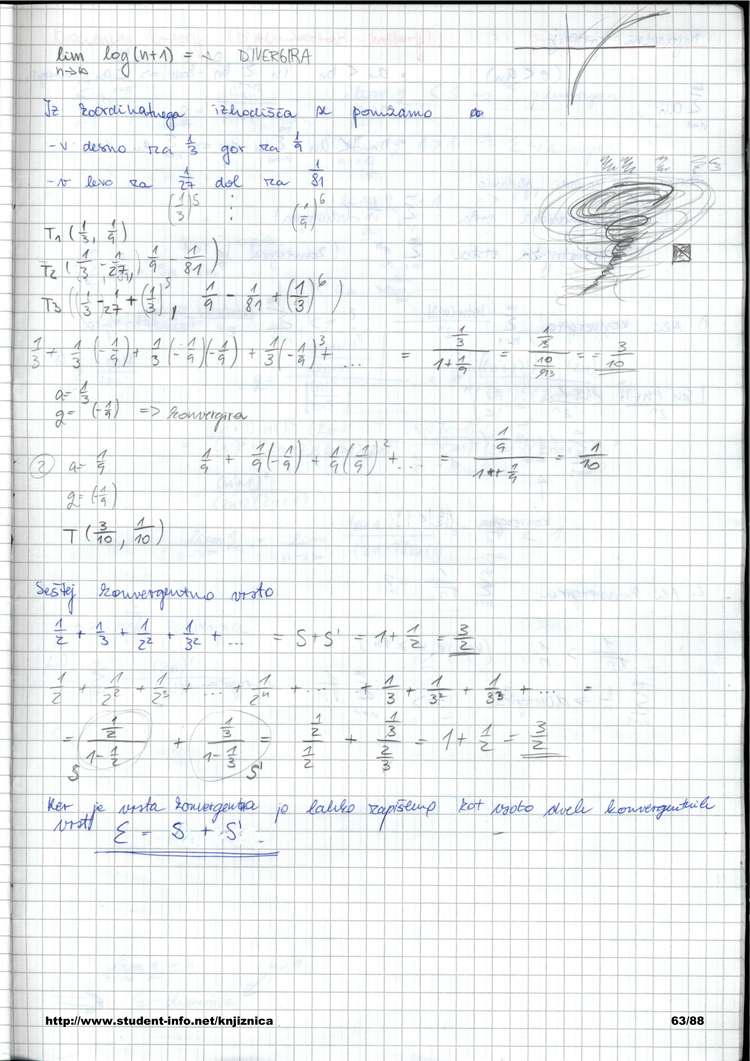 lim log(n+1) = ∞ DIVERGIRA
n→∞
Iz koordinatnega izhodišča se pomikamo
- v desno za 1/3 gor za 1/9
- v levo za 1/27 dol za 1/81
(1/3)^5 ⋮ (1/9)^6
T1 (1/3, 1/9)
T2 (1/3 - 1/27, 1/9 - 1/81)
T3 (1/3 - 1/27 + (1/3)^5, 1/9 - 1/81 + (1/3)^6)
1/3 + 1/3 (-1/9) + 1/3 (-1/9)(-1/9) + 1/3 (-1/9)^3 + ... = (1/3)/(1+1/9) = (1/3)/(10/9) = 3/10
a = 1/3
q = (-1/9) => konvergira
2 a = 1/9 1/9 + 1/9(-1/9) + 1/9(1/9)^2 + ... = (1/9)/(1+1/9) = 1/10
q = (-1/9)
T (3/10, 1/10)
Seštej konvergentno vrsto
1/2 + 1/3 + 1/2^2 + 1/3^2 + ... = S + S' = 1 + 1/2 = 3/2
1/2 + 1/2^2 + 1/2^3 + ... + 1/2^n + ... + 1/3 + 1/3^2 + 1/3^3 + ... =
= (1/2)/(1-1/2) + (1/3)/(1-1/3) = (1/2)/(1/2) + (1/3)/(2/3) = 1 + 1/2 = 3/2
S S'
Ker je vrsta konvergentna jo lahko zapišemo kot vsoto dveh konvergentnih
vrst Σ = S + S'
http://www.student-info.net/knjiznica 63/88